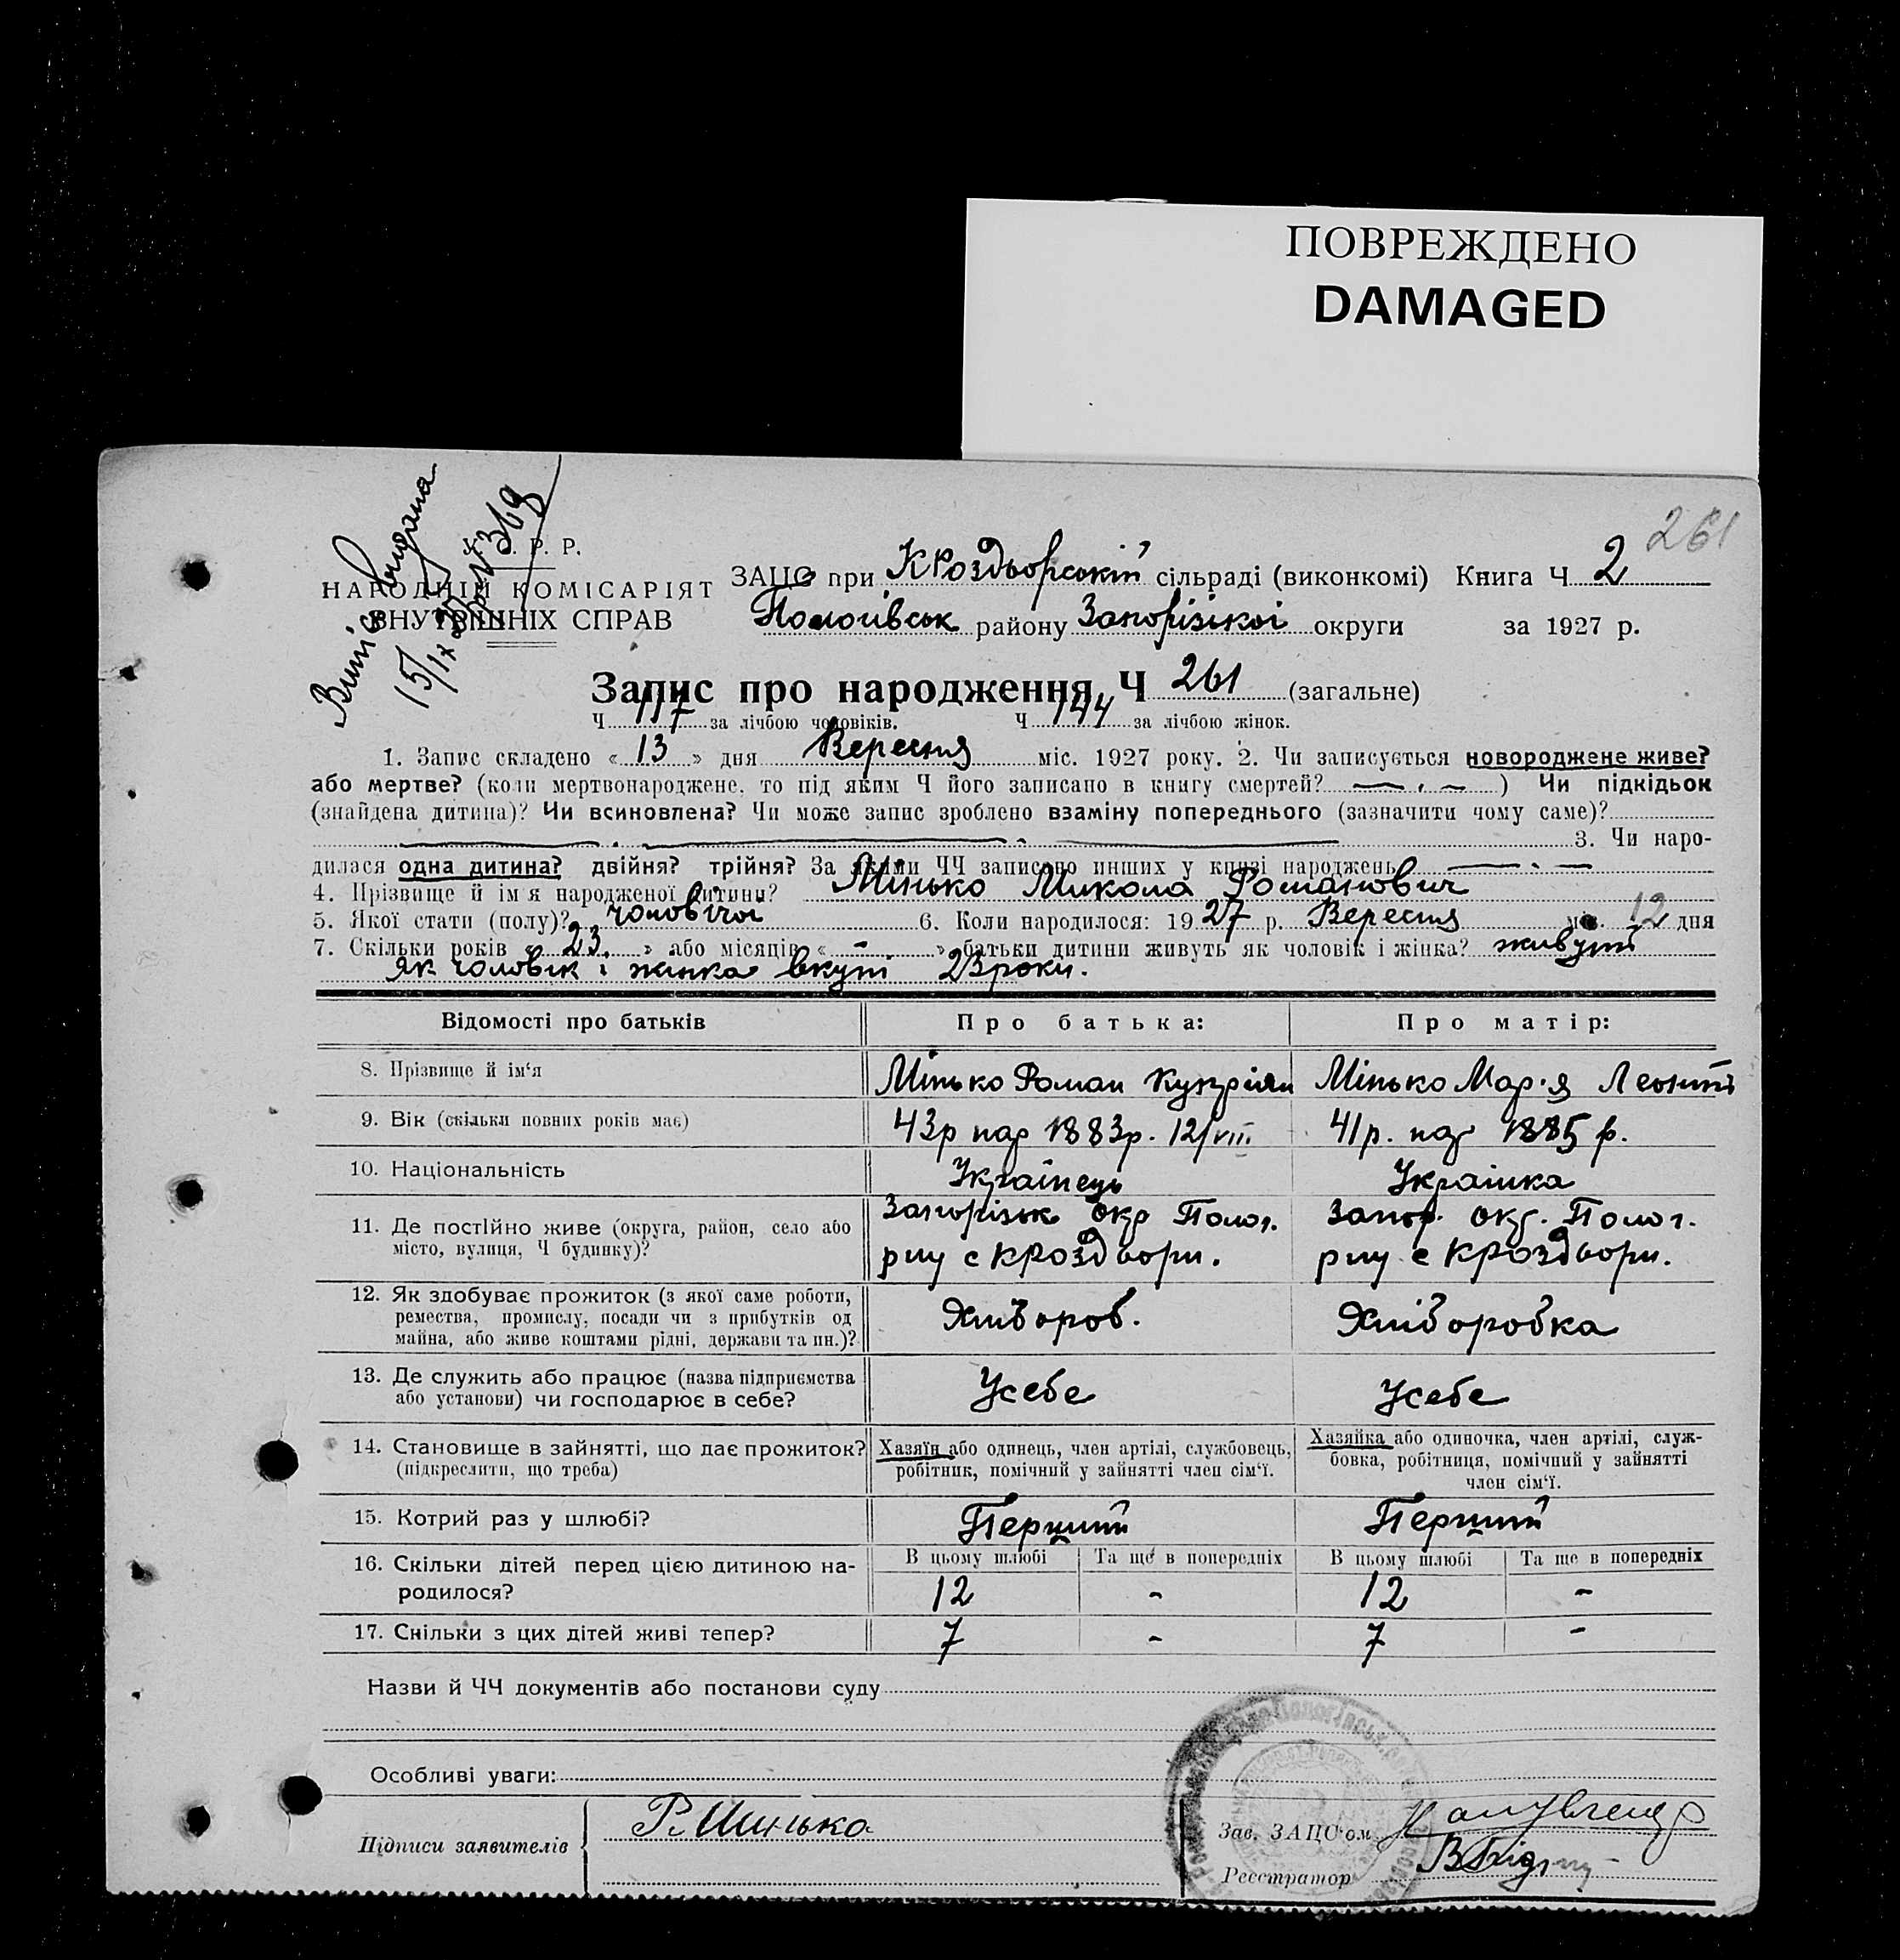 ПОВРЕЖДЕНО
DAMAGED
261
С. Р. Р.
НАРОДНІЙ КОМІСАРІЯТ
ВНУТРІШНІХ СПРАВ
15/IX
ЗАЦС при КРоздорській сільраді (виконкомі) Книга Ч 2
Пологівськ району Запорізької округи за 1927 р.
Запис про народження Ч 261 (загальне)
Ч 117 за лічбою чоловіків. Ч 144 за лічбою жінок.
1. Запис складено « 13 » дня Вересня міс. 1927 року. 2. Чи записується новороджене живе?
або мертве? (коли мертвонароджене, то під яким Ч його записано в книгу смертей? — . — ) Чи підкідьок
(знайдена дитина)? Чи всиновлена? Чи може запис зроблено взаміну попереднього (зазначити чому саме)?
3. Чи наро-
дилася одна дитина? двійня? трійня? За якими ЧЧ записано инших у книзі народжень — . —
4. Прізвище й імя народженої дитини? Мінько Микола Романович
5. Якої стати (полу)? чоловічої 6. Коли народилося: 1927 р. Вересня міс. 12 дня
7. Скільки років « 23. » або місяців « - » батьки дитини живуть як чоловік і жінка? живуть
як чоловік і жінка вкупі 23 роки.
Відомості про батьків Про батька: Про матір:
8. Прізвище й ім'я Мінько Роман Купріян Мінько Мар'я Леонть
9. Вік (скільки повних років має) 43р нар 1883р. 12/VIII 41р. 1885 р.
10. Національність Українець Українка
11. Де постійно живе (округа, район, село або Запорізьк окр Полог. Запор. окр. Полог.
місто, вулиця, Ч будинку)? рну с КРоздори. рну с КРоздори.
12. Як здобуває прожиток (з якої саме роботи,
ремества, промислу, посади чи з прибутків од Хлібороб. Хліборобка
майна, або живе коштами рідні, держави та ин.)?
13. Де служить або працює (назва підприємства Усебе Усебе
або установи) чи господарює в себе?
14. Становище в зайнятті, що дає прожиток? Хазяїн або одинець, член артілі, службовець, Хазяйка або одиночка, член артілі, служ-
(підкреслити, що треба) робітник, помічний у зайнятті член сім'ї. бовка, робітниця, помічний у зайнятті
член сім'ї.
15. Котрий раз у шлюбі? Перший Перший
16. Скільки дітей перед цією дитиною на- В цьому шлюбі Та ще в попередніх В цьому шлюбі Та ще в попередніх
родилося? 12 - 12 -
17. Скільки з цих дітей живі тепер? 7 - 7 -
Назви й ЧЧ документів або постанови суду
Особливі уваги:
Підписи заявителів Р. Минько
Зав. ЗАЦС'ом
Реєстратор